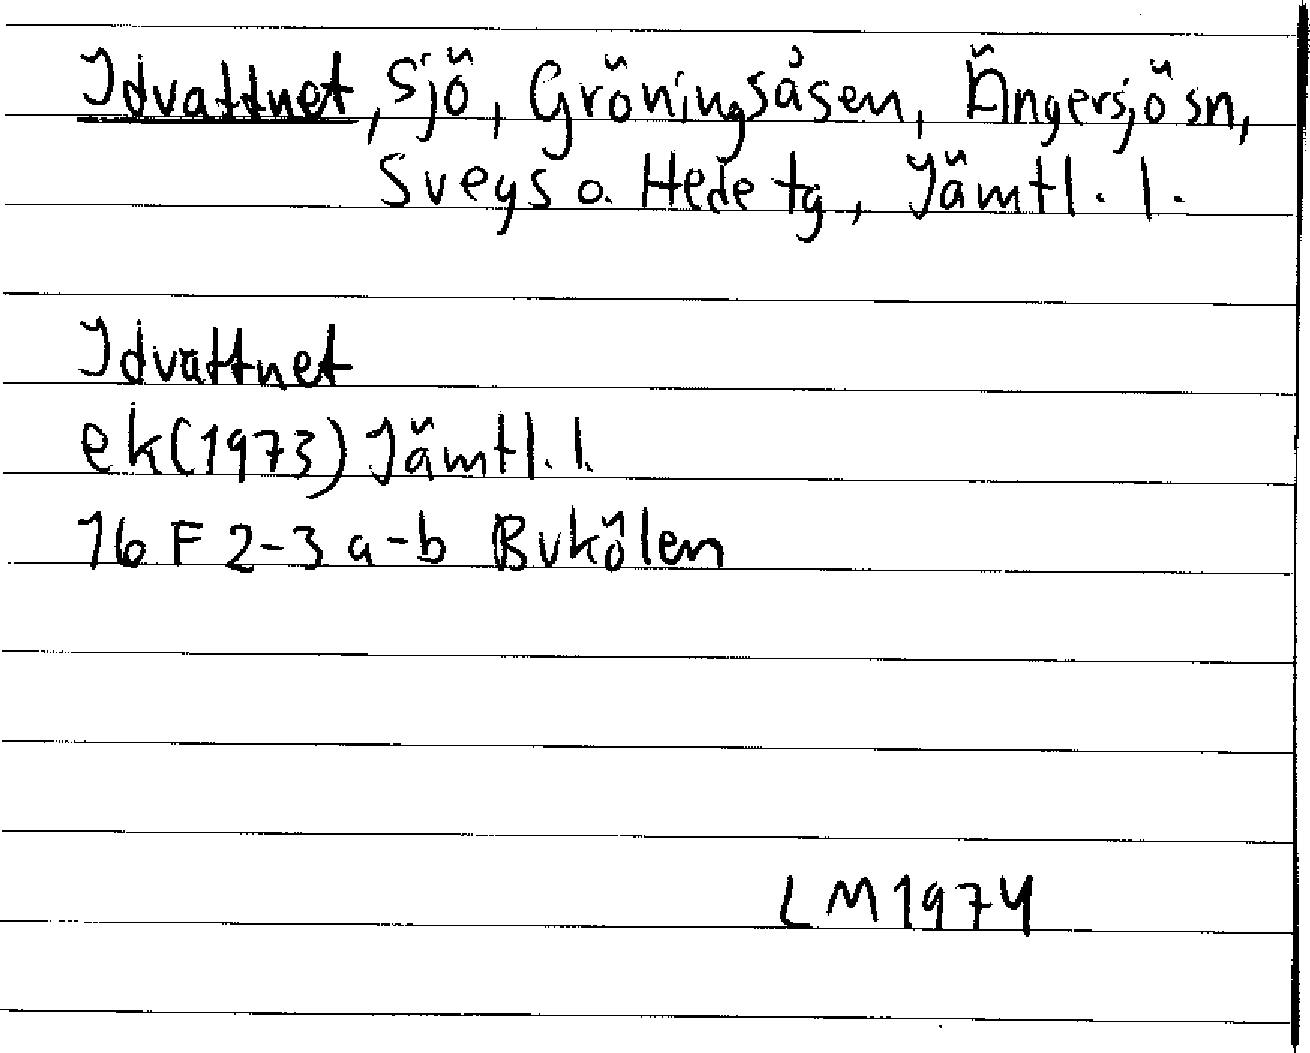 Idvattnet, sjö, Gröningsåsen, Ängersjö sn,
Svegs o. Hede tg, Jämtl. l.
Idvattnet
ek(1973) Jämtl. l.
16 F 2-3 a-b Bukölen
LM 1974